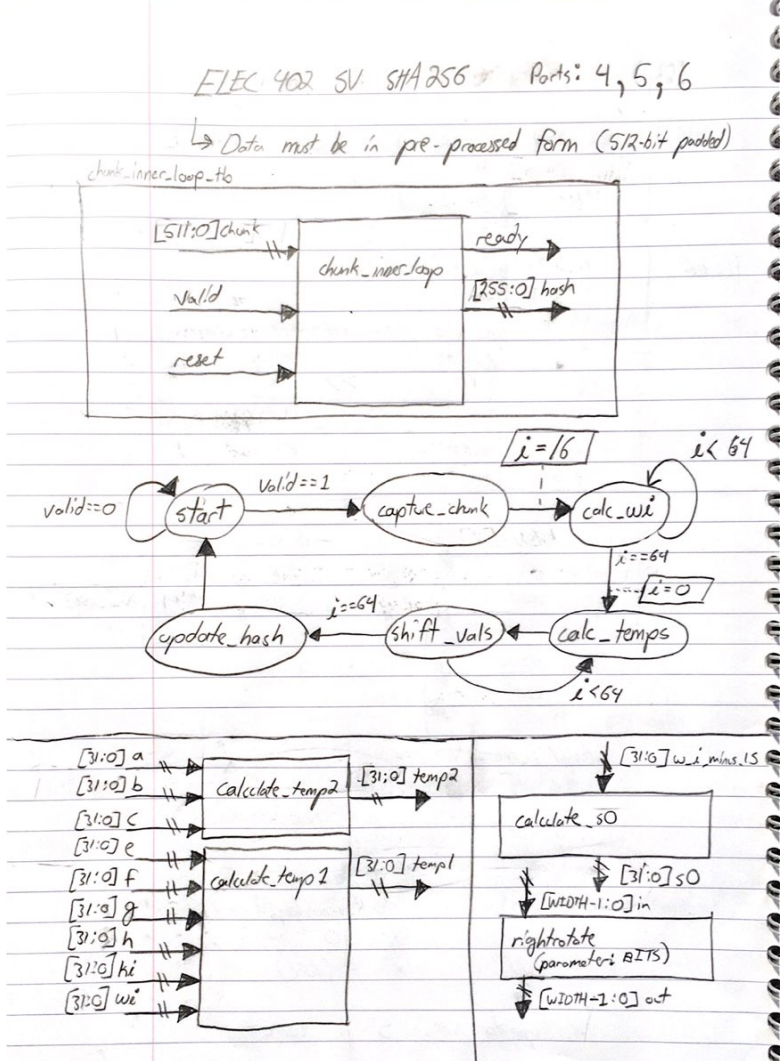 ELEC 402 SV SHA256 Ports: 4, 5, 6
↳ Data must be in pre-processed form (512-bit padded)
chunk_inner_loop_tb
[511:0] chunk
chunk_inner_loop
ready
valid
[255:0] hash
reset
i=16
i< 64
valid==0
start
valid==1
capture_chunk
calc_wi
i==64
i=0
update_hash
i==64
shift_vals
calc_temps
i<64
[31:0] a
[31:0] b
[31:0] c
calculate_temp2
[31:0] temp2
[31:0] e
[31:0] f
[31:0] g
[31:0] h
[31:0] ki
[31:0] wi
calculate_temp1
[31:0] temp1
[31:0] w_i_minus_15
calculate_s0
[31:0] s0
[WIDTH-1:0] in
rightrotate
(parameter: BITS)
[WIDTH-1:0] out